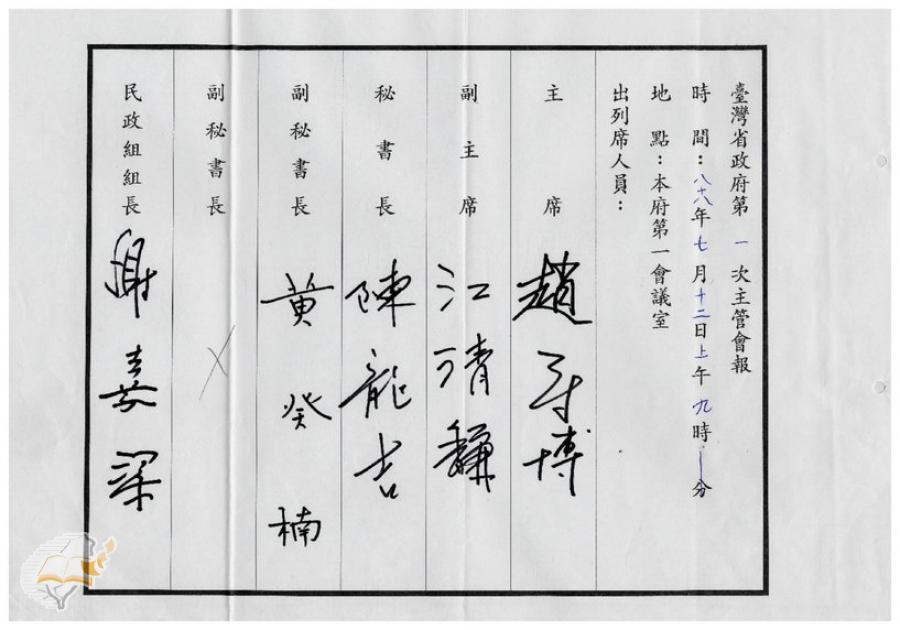 臺灣省政府第一次主管會報
時間：八十八年七月十二日上午九時　分
地點：本府第一會議室
出列席人員：
主席 趙守博
副主席 江清馦
秘書長 陳龍吉
副秘書長 黃癸楠
副秘書長
民政組組長 謝嘉梁